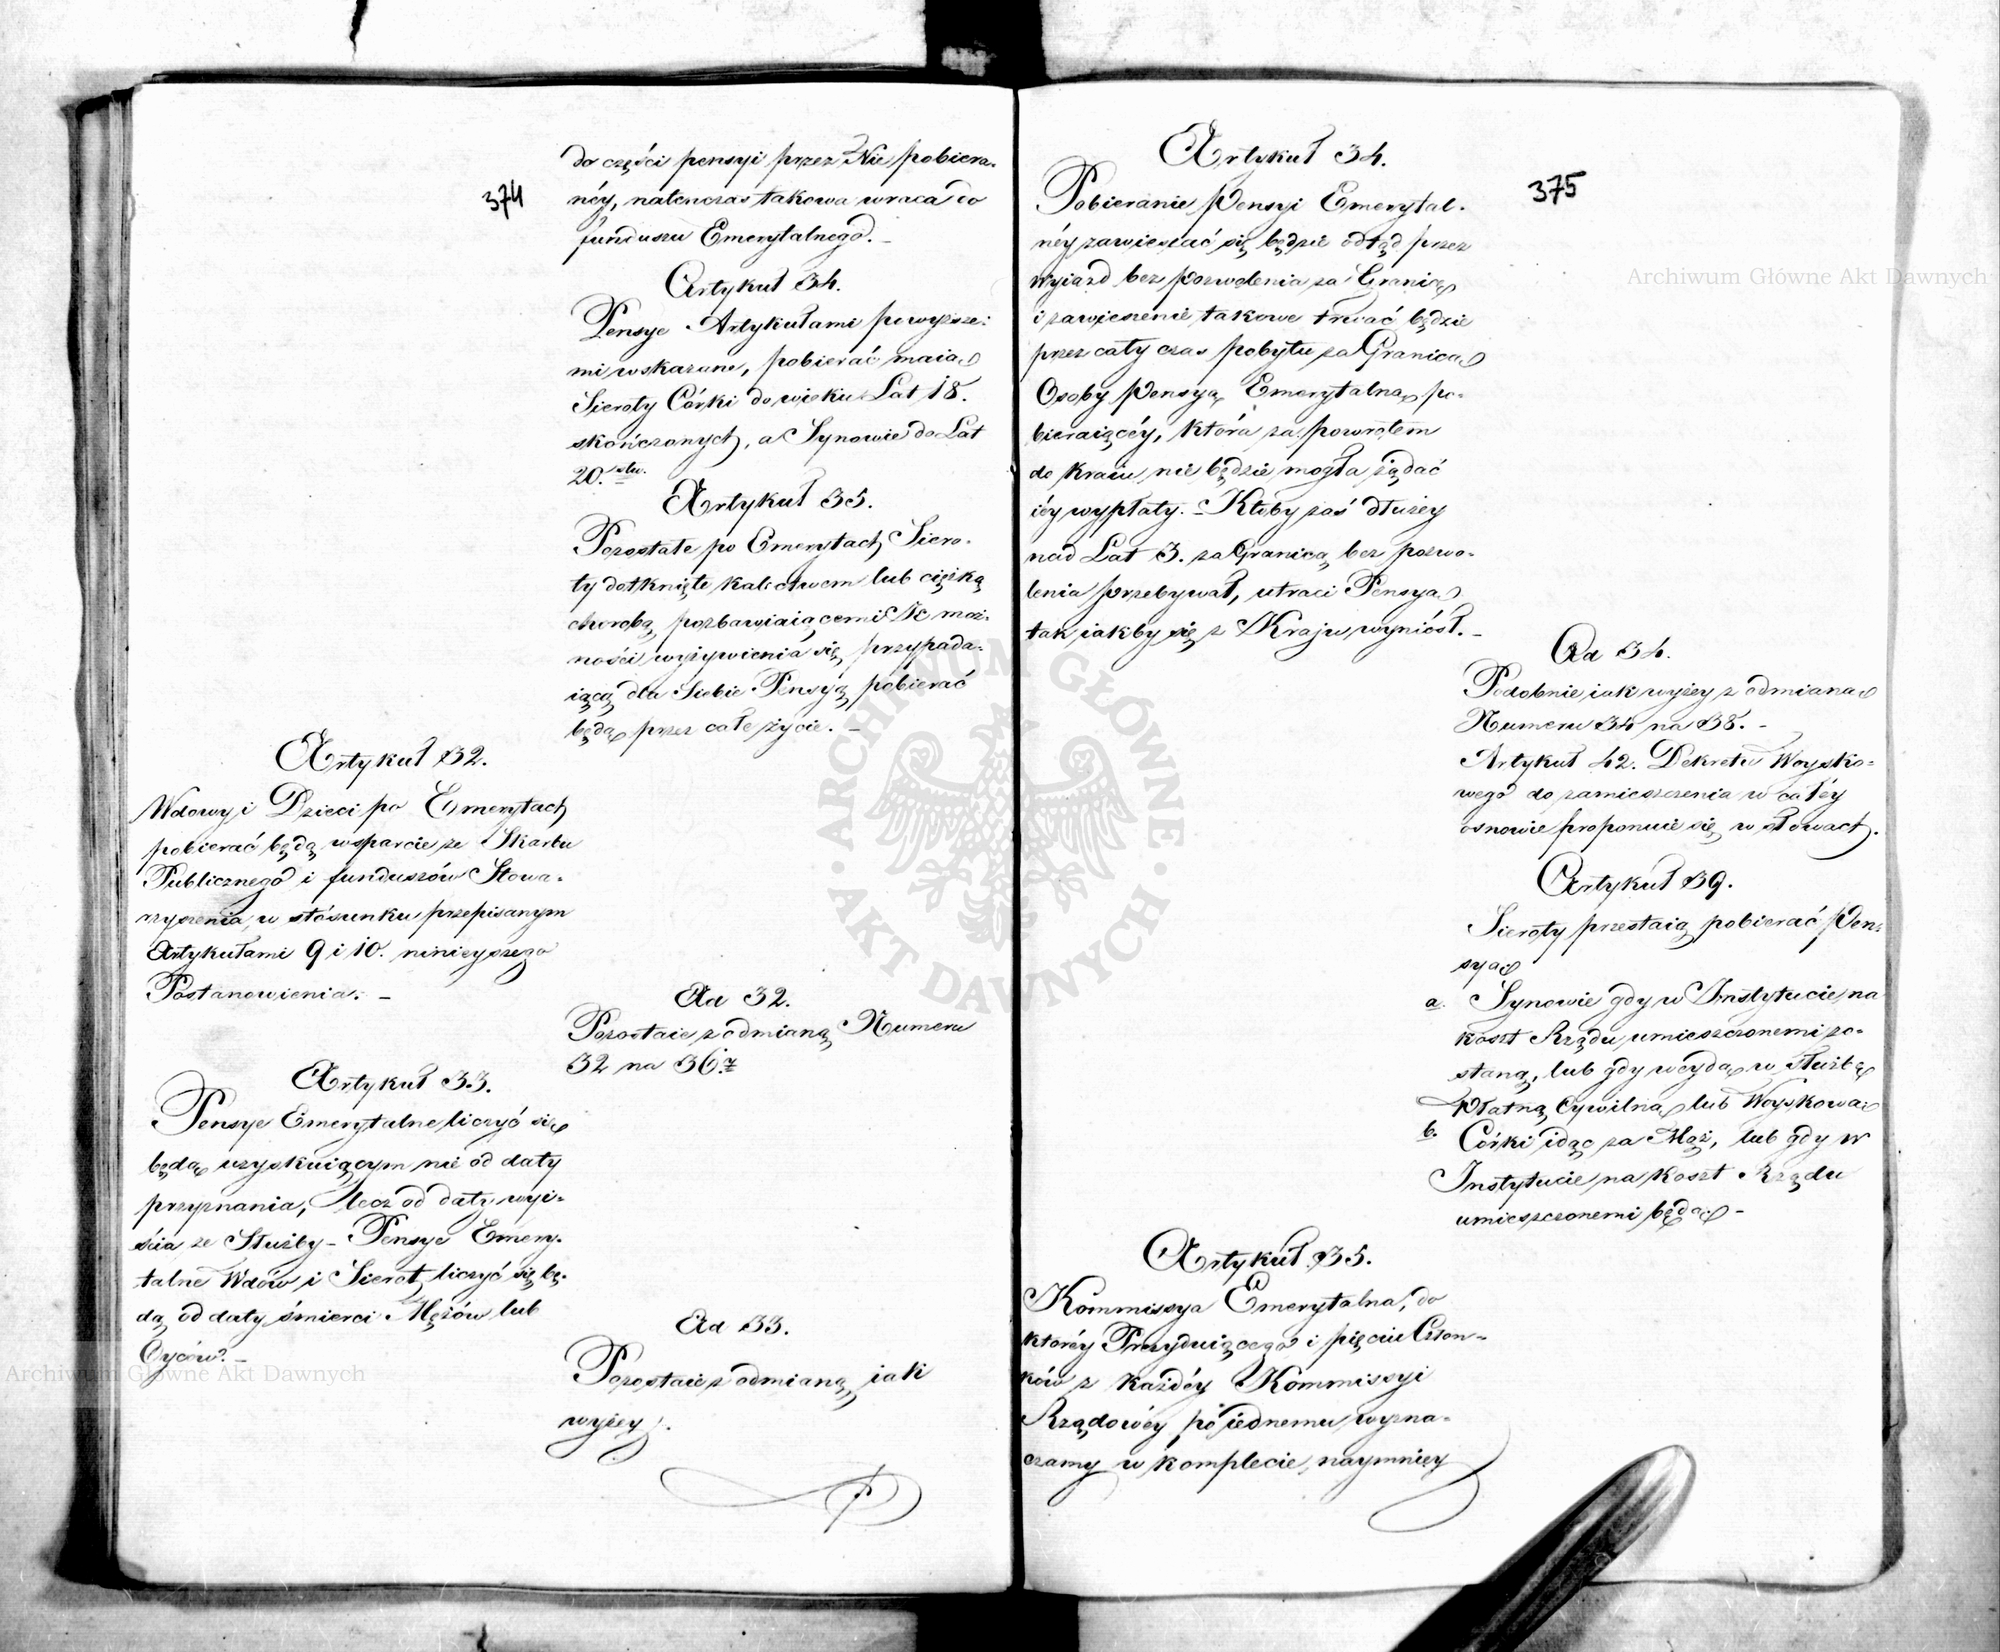 374
do części pensyi przez Nie pobiera-
néy, natenczas takowa wraca do
funduszu Emerytalnego. _
Artykuł 34.
Pensye Artykułami powyższe:
mi wskazane, pobierać maią
Sieroty Córki do wieku Lat 18.
skończonych, a Synowie do Lat
20.stu.
Artykuł 35.
Pozostałe po Emerytach Siero-
ty dotknięte kalectwem lub ciężką
chorobą pozbawiaiącemi Je moż-
ności wyżywienia się, przypada-
iącą dla Siebie Pensyą pobierać
będą przez całe życie. _
Artykuł 32.
Wdowy i Dzieci po Emerytach
pobierać będą wsparcie ze Skarbu
Publicznego i funduszów Stowa-
rzyszenia, w stósunku przepisanym
Artykułami 9 i 10. ninieyszego
Postanowienia. _
Ad 32.
Pozostaie z odmianą Numeru
32 na 36.
Artykuł 33.
Pensye Emerytalne liczyć się
będą uzyskuiącym nie od daty
przyznania, lecz od daty wyi-
ścia ze Służby _ Pensye Emery-
talne Wdów i Sierot, liczyć się bę-
dą od daty śmierci Mężów lub
Oyców. _
Ad 33.
Pozostaie z odmianą, jak
wyżey.
375
Artykuł 34.
Pobieranie Pensyi Emerytal-
néy zawieszać się będzie odtąd przez
wyiazd bez pozwolenia za Granicę
i zawieszenie takowe trwać będzie
przez cały czas pobytu za Granicą
Osoby Pensyą Emerytalną po-
bieraiącéy, która za powrotem
do kraiu nie będzie mogła żądać
iéy wypłaty. _ Ktoby zaś dłużey
nad Lat 3. za Granicą bez pozwo-
lenia przebywał, utraci Pensyą
tak iakby się z Kraju wyniósł. _
Ad 34.
Podobnie iak wyżey z odmianą
Numeru 34 na 38. _
Artykuł 42. Dekretu Woysko-
wego do zamieszczenia w całéy
osnowie proponuie się w słowach.
Artykuł 39.
Sieroty przestaią pobierać Pen-
syą
a. Synowie gdy w Instytucie na
koszt Rządu umieszczonemi zo-
staną, lub gdy weydą w służbę
Płatną Cywilną lub Woyskową
b. Córki idąc za Mąż, lub gdy w
Instytucie na koszt Rządu
umieszczonemi będą. _
Artykuł 35.
Kommissya Emerytalna, do
któréy Prezyduiącego i pięciu Człon-
ków z każdéy Kommissyi
Rządowéy po iednemu wyzna-
czamy w komplecie naymniéy
Archiwum Główne Akt Dawnych
Archiwum Główne Akt Dawnych
ARCHIWUM GŁÓWNE AKT DAWNYCH